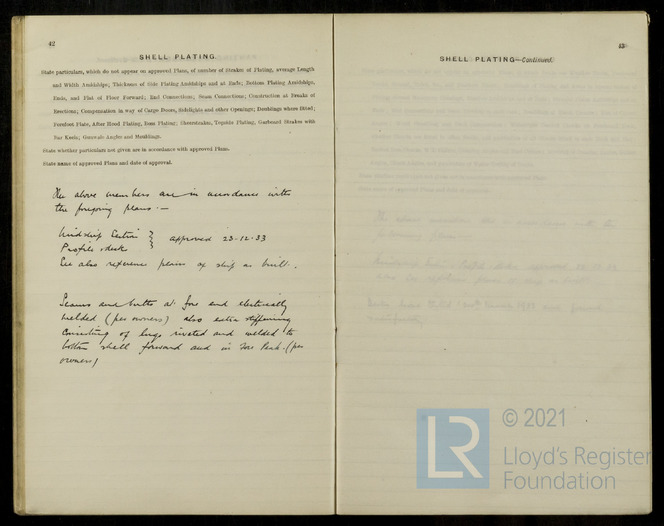 42
SHELL PLATING.
State particulars, which do not appear on approved Plans, of number of Strakes of Plating, average Length
and Width Amidships; Thickness of Side Plating Amidships and at Ends; Bottom Plating Amidships,
Ends, and Flat of Floor Forward; End Connections; Seam Connections; Construction at Breaks of
Erections; Compensation in way of Cargo Doors, Sidelights and other Openings; Doublings where fitted;
Forefoot Plate, After Hood Plating, Boss Plating; Sheerstrakes, Topside Plating, Garboard Strakes with
Bar Keels; Gunwale Angles and Mouldings.
State whether particulars not given are in accordance with approved Plans.
State name of approved Plans and date of approval.
The above members are in accordance with
the foregoing plans:—
Midship Section } approved 23-12-33
Profile & deck
See also reference plans of ship as built.
Seams and butts at fore end electrically
welded (per owners) also extra stiffening
consisting of lugs riveted and welded to
bottom shell forward and in Fore Peak. (per
owners)
43
SHELL PLATING—Continued.
LR
© 2021
Lloyd's Register
Foundation